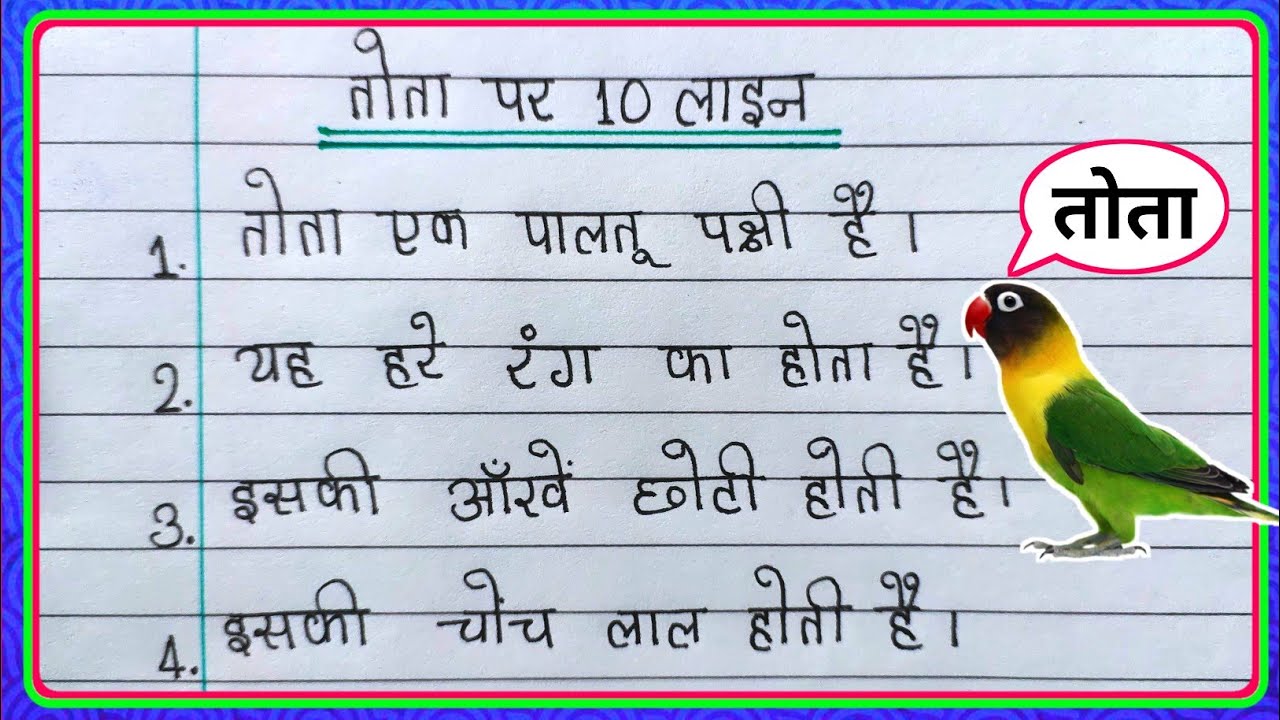 तोता पर 10 लाइन
1. तोता एक पालतू पक्षी है।
तोता
2. यह हरे रंग का होता है।
3. इसकी आँखें छोटी होती है।
4. इसकी चोंच लाल होती है।